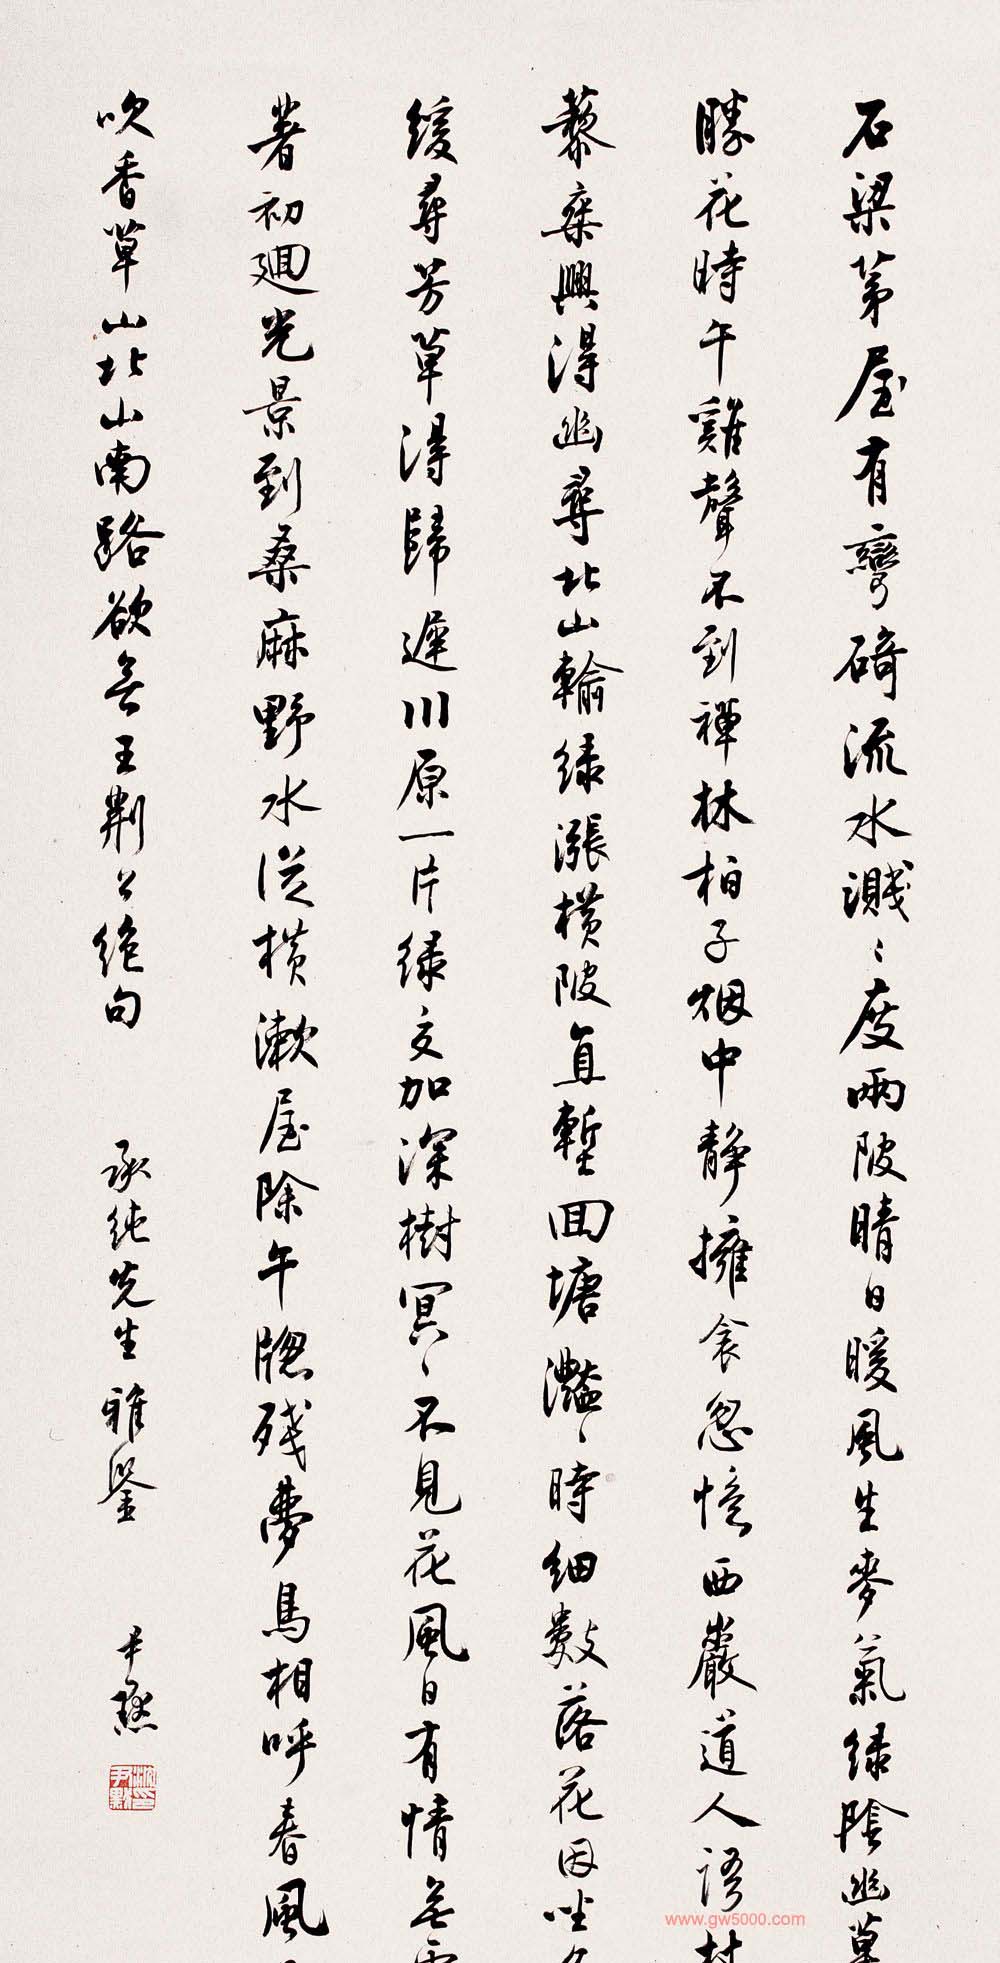 石梁茅屋有彎碕流水濺〻度兩陂晴日暖風生麥氣綠陰幽草
勝花時午雞聲不到禪林柏子烟中静擁衾忽憶西巖道人語杖
藜乘興得幽尋北山輸綠漲橫陂直塹回塘灩〻時細數落花因坐久
緩尋芳草得歸遲川原一片綠交加深樹冥〻不見花風日有情無處
著初迴光景到桑麻野水從橫漱屋除午牕殘夢鳥相呼春風
吹香草山北山南路欲無王荆公絕句 承純先生雅鑒 尹默
www.gw5000.com